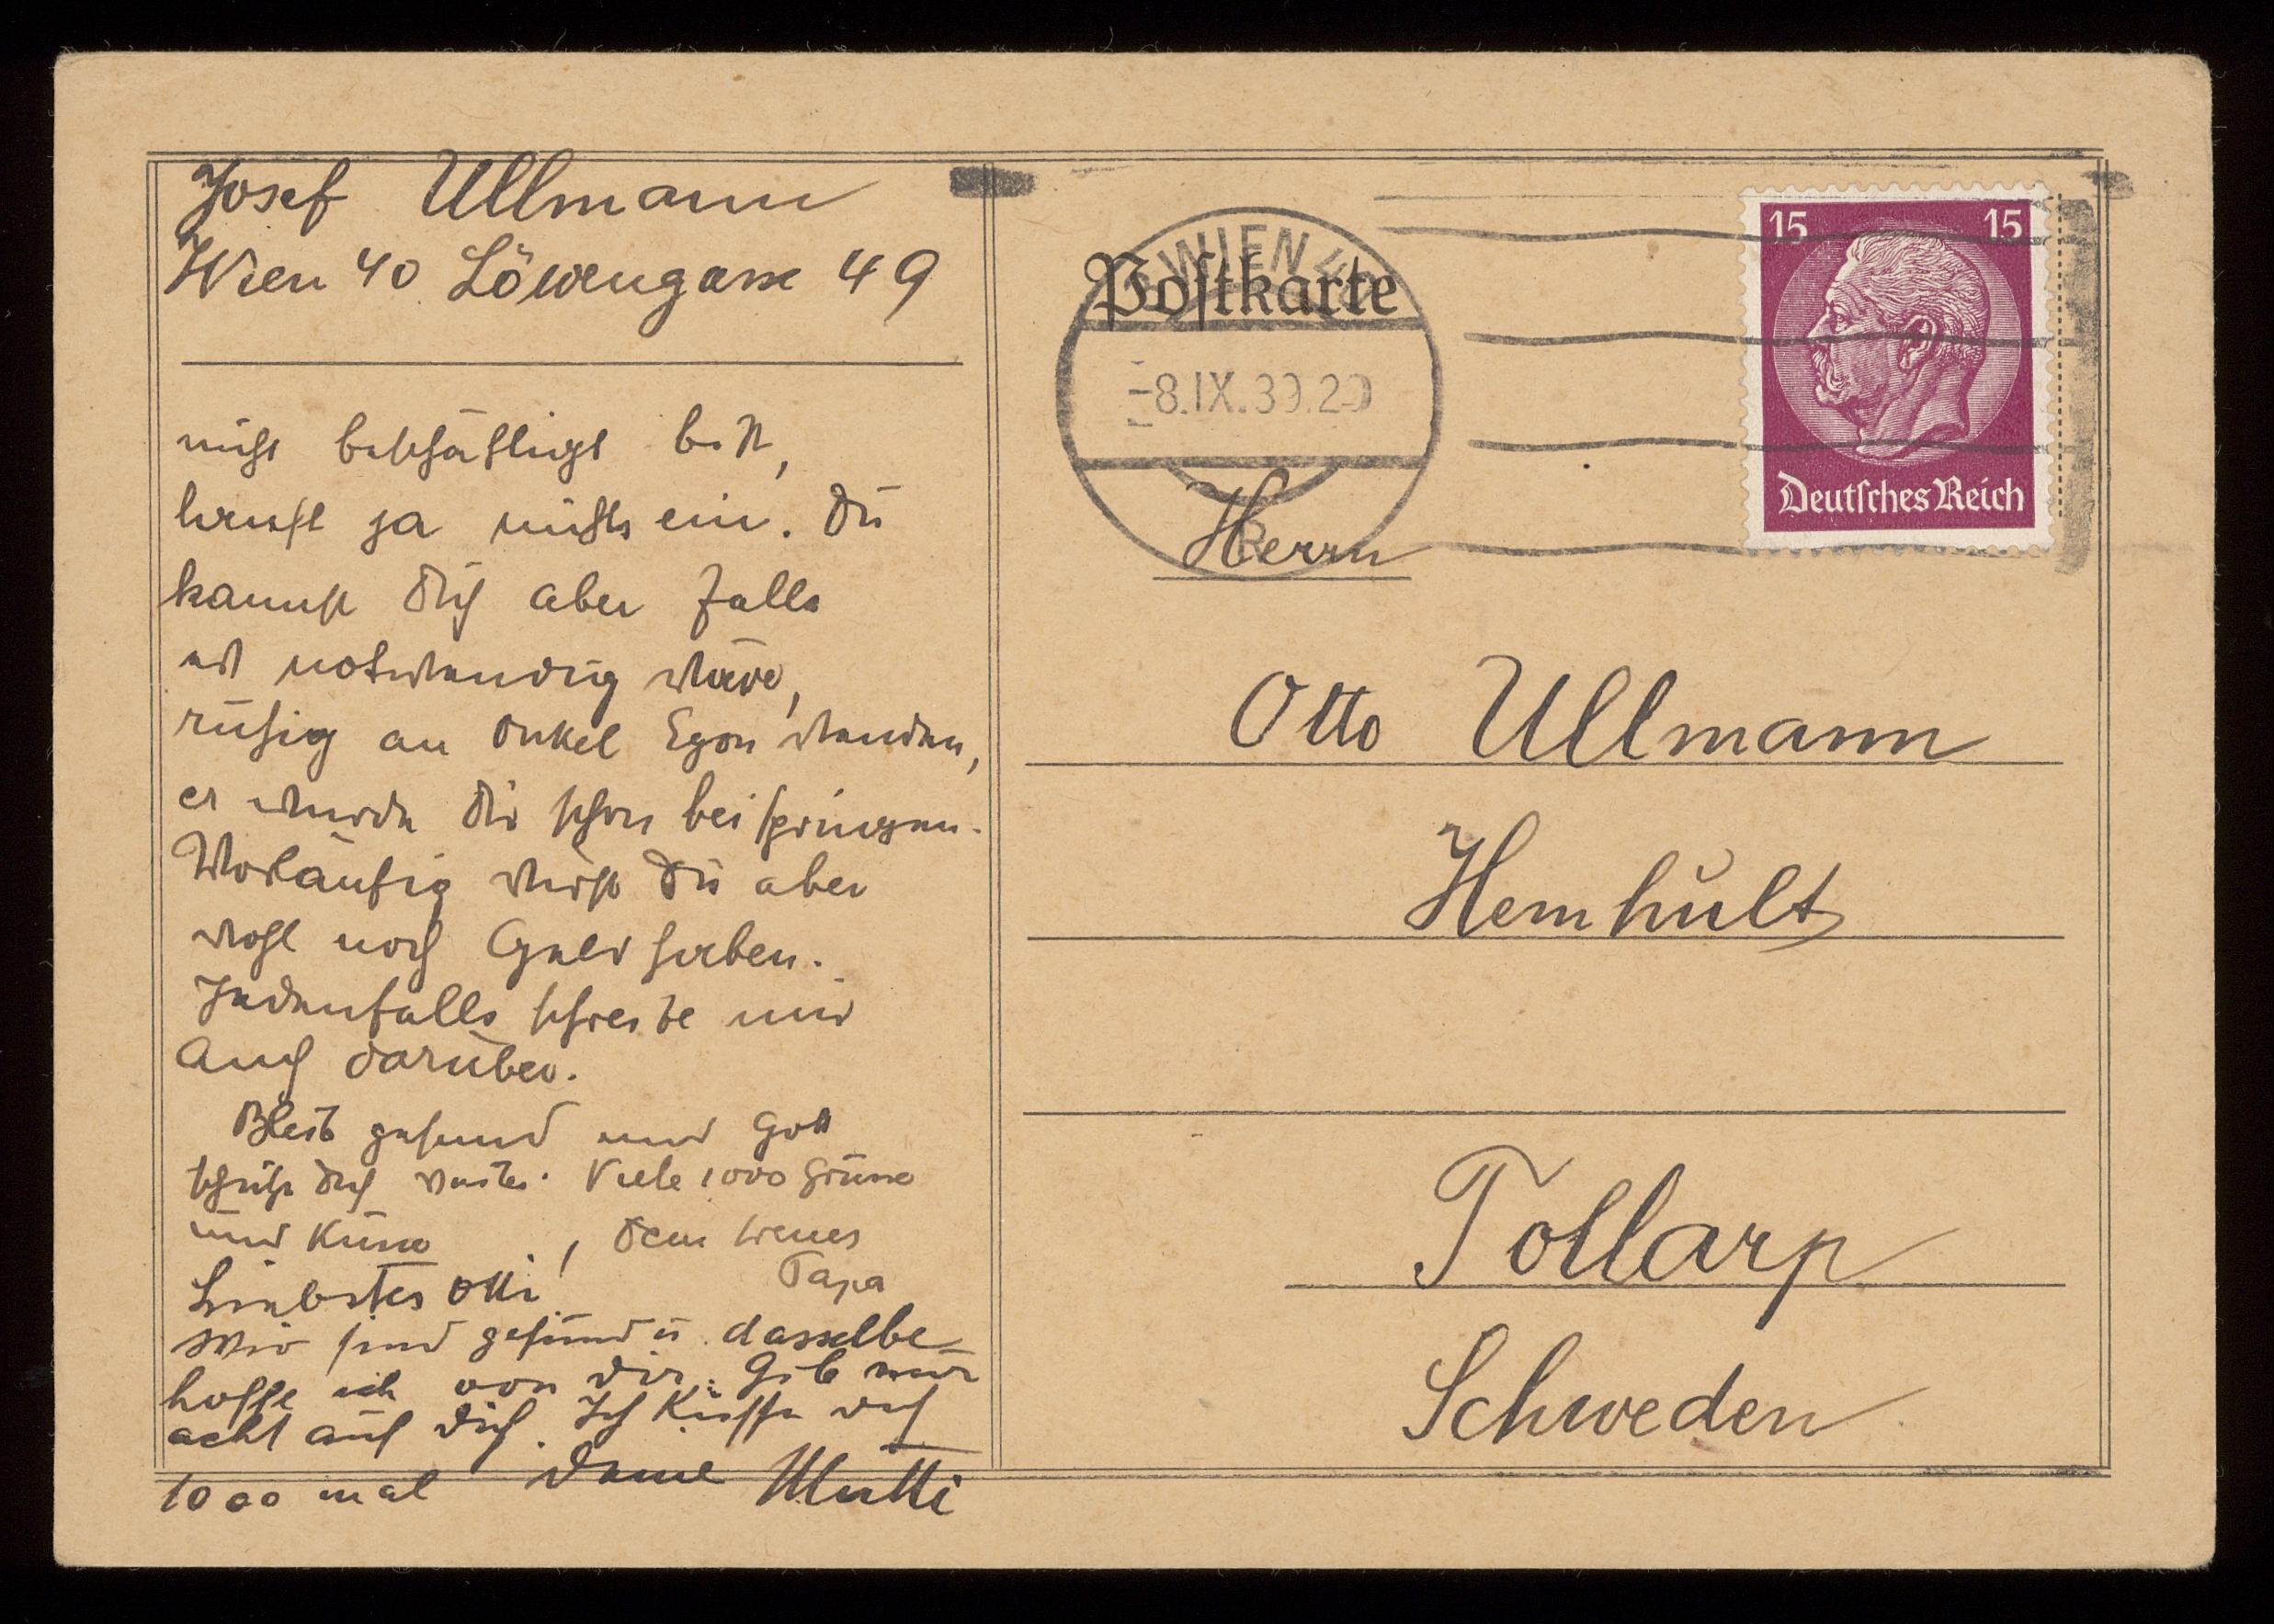 Josef Ullmann
Wien 40 Löwengasse 49
nicht beschäftigt bist,
kaufst ja nichts ein. Du
kannst Dich aber falls
es notwendig wäre,
ruhig an Onkel Egon wenden,
er würde Dir schon beispringen.
Vorläufig wirst Du aber
wohl noch Geld haben.
Jedenfalls schreibe mir
auch darüber.
Bleib gesund und Gott
schütze Dich weiter. Viele 1000 Grüsse
und Küsse, Dein treues
Papa
Liebstes Otti!
Wir sind gesund u. dasselbe
hoffe ich von Dir. Gib nur
acht auf Dich. Ich küsse Dich
1000 mal Deine Mutti
Postkarte
WIEN 40
-8.IX.39.20
15 15
Deutsches Reich
Herrn
Otto Ullmann
Hemhult
Tollarp
Schweden